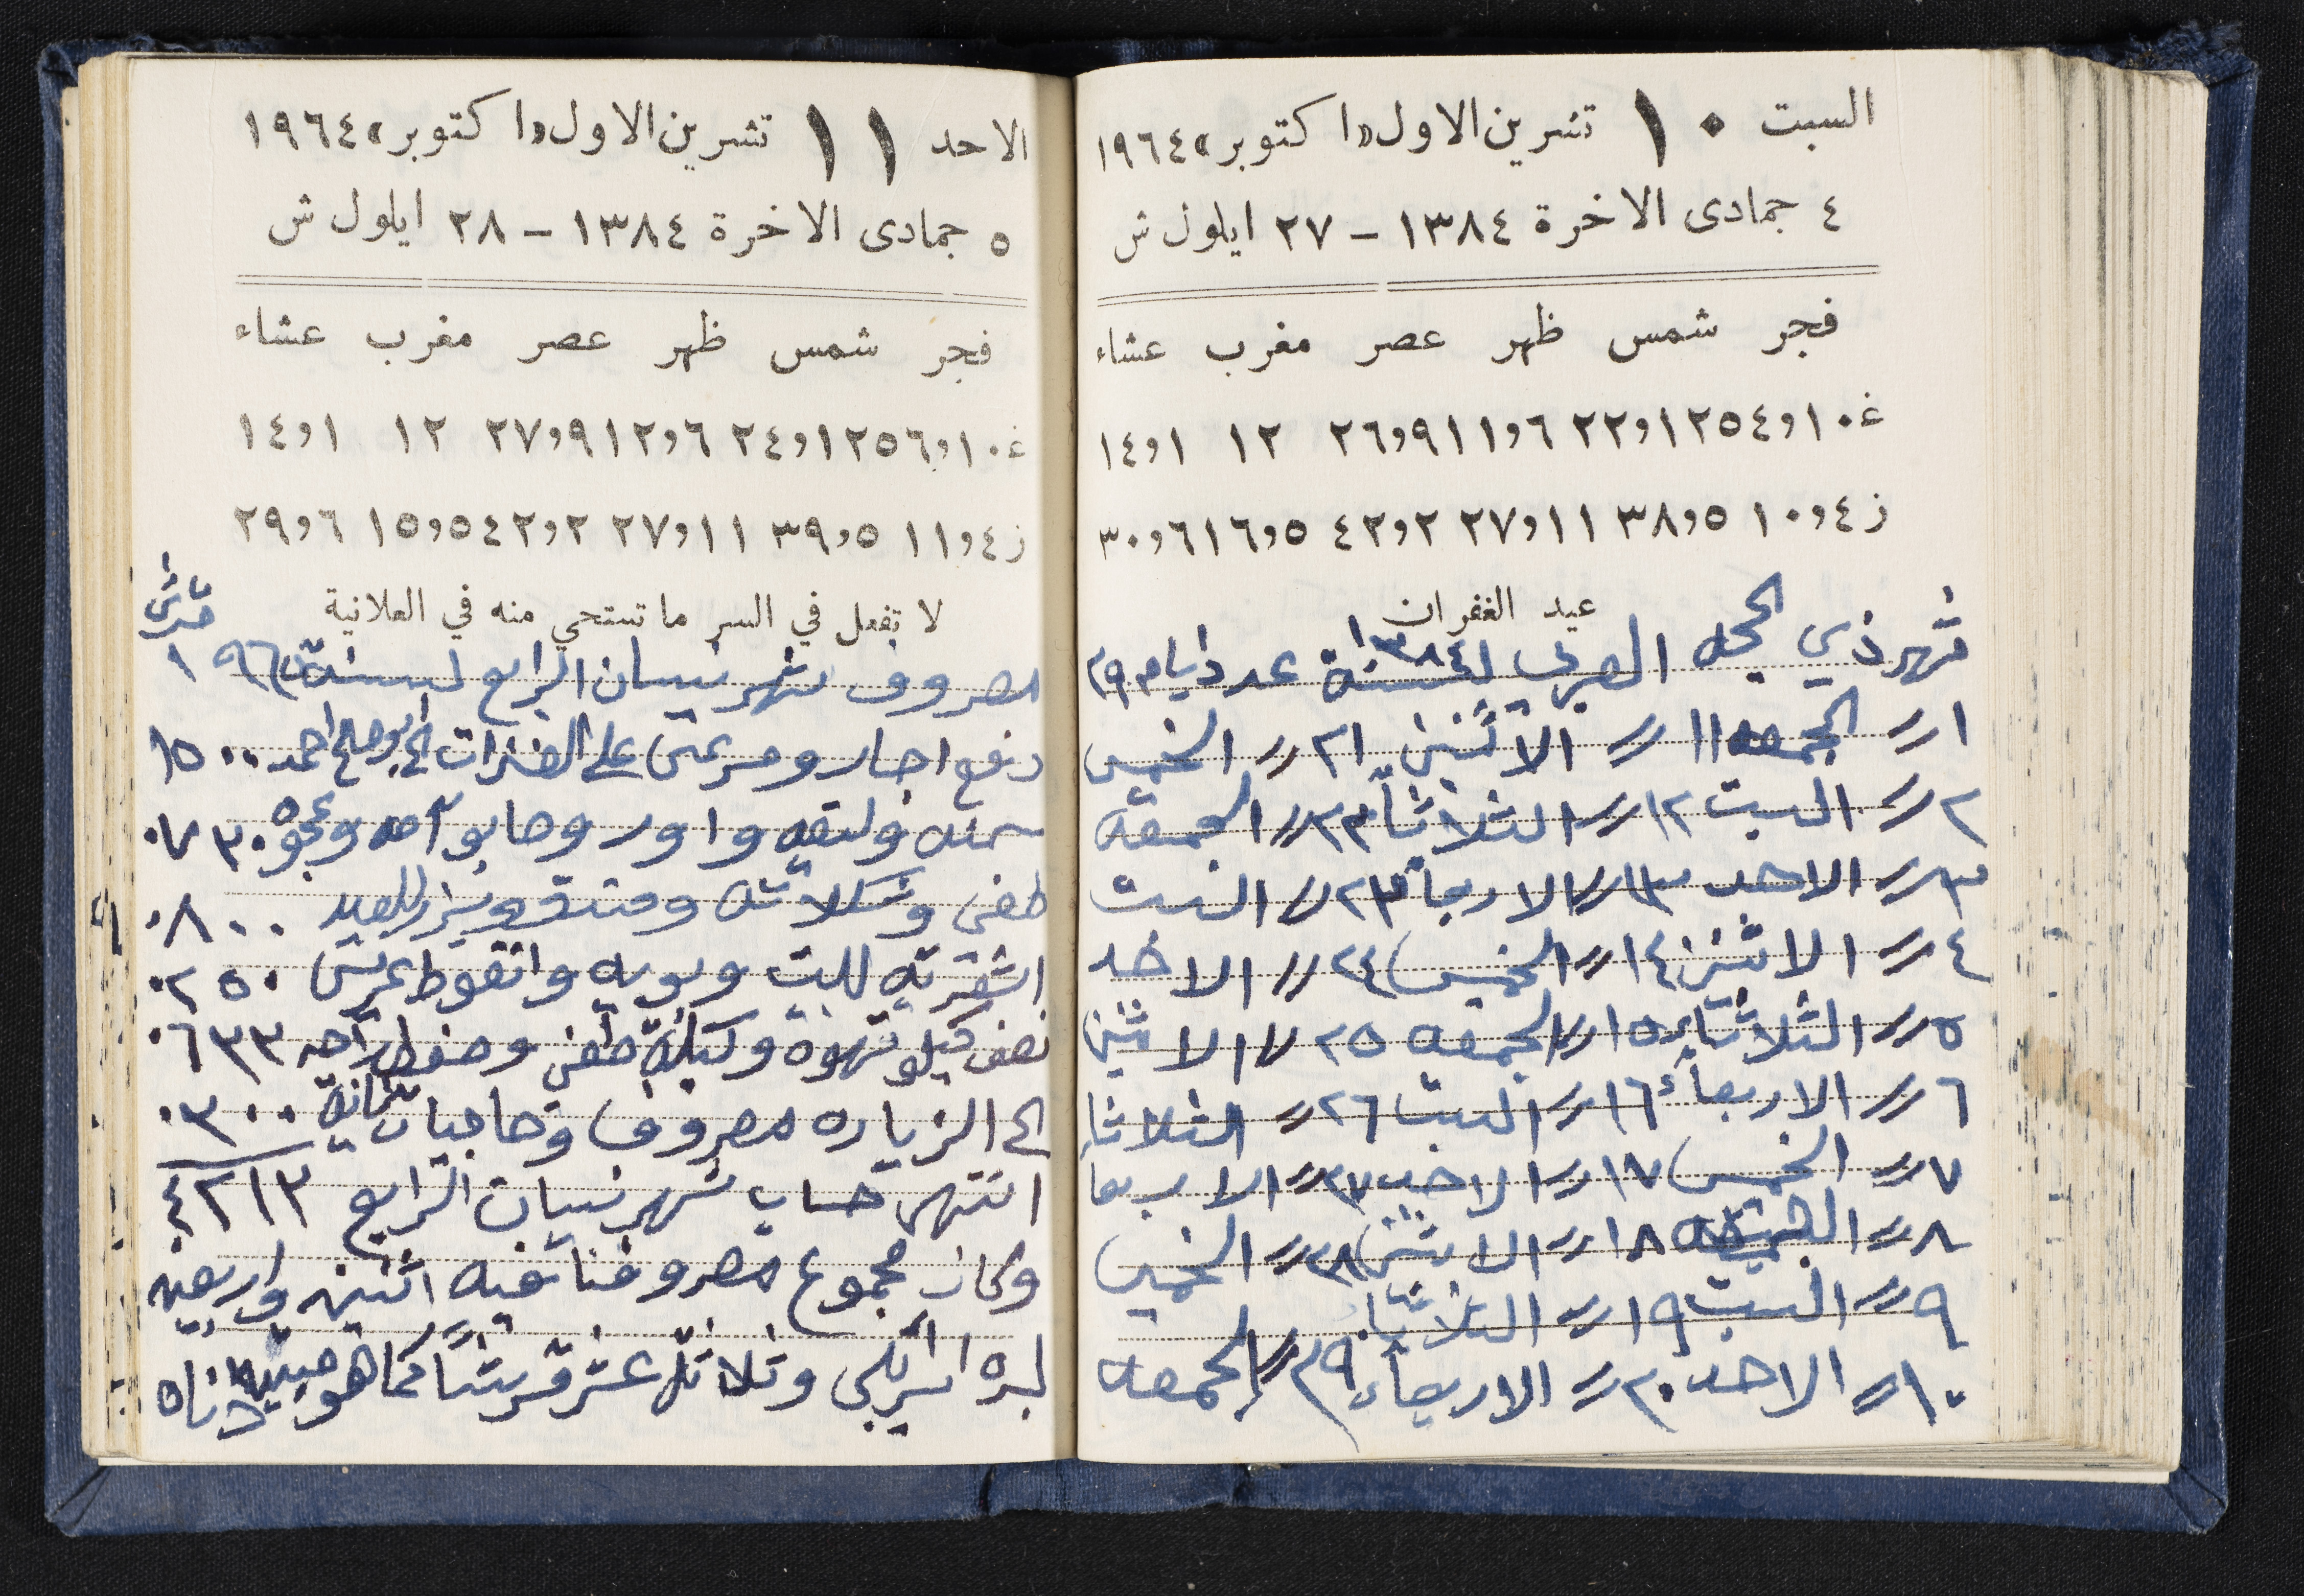 السبت ١٠ تشرين الاول «اكتوبر» ١٩٦٤
٤ جمادى الاخرة ١٣٨٤ - ٢٧ ايلول ش
فجر شمس ظهر عصر مغرب عشاء
غ ١٠و٥٤ ١٢و٢٢ ٦و١١ ٩و٢٦ ١٢ ١و١٤
ز ٤و١٠ ٥و٣٨ ١١و٢٧ ٢و٤٢ ٥و١٦ ٦و٣٠
عيد الغفران
شهر ذي الحجه العربي لسنة ١٣٨٤ عدد ايام ٢٩
١ // الجمعه ١١ // الاثنين ٢١ // الخميس
٢ // السبت ١٢ // الثلاثاء ٢٢ // الجمعه
٣ // الاحد ١٣ // الاربعاء ٢٣ // السبت
٤ // الاثنين ١٤ // الخميس ٢٤ // الاحد
٥ // الثلاثاء ١٥ // الجمعه ٢٥ // الاثنين
٦ // الاربعاء ١٦ // السبت ٢٦ // الثلاثا
٧ // الخميس ١٧ // الاحد ٢٧ // الاربعا
٨ // الجمعه ١٨ // الاثنين ٢٨ // الخميس
٩ // السبت ١٩ // الثلاثاء
١٠ // الاحد ٢٠ // الاربعاء ٢٩ // الجمعه
الاحد ١١ تشرين الاول «اكتوبر» ١٩٦٤
٥ جمادى الاخرة ١٣٨٤ - ٢٨ ايلول ش
فجر شمس ظهر عصر مغرب عشاء
غ ١٠و٥٦ ١٢و٢٤ ٦و١٢ ٩و٢٧ ١٢ ١و١٤
ز ٤و١١ ٥و٣٩ ١١و٢٧ ٢و٤٢ ٥و١٥ ٦و٢٩
لا تفعل في السر ما تستحي منه في العلانية
مصروف شهر نيسان الرابع لسنة
دفع اجار على الى ابو صالح احمد ١٥٠٠
وعجوه ٠٧٣٠
للعيد ٠٨٠٠
للبيت وبويه ٠٢٥٠
نصف كيلو قهوة ٠٦٣٣
الى الزياره مصروف وحاجيات ٠٣٠٠
انتهى حساب شهر نيسان الرابع ٤٢١٣
وكان مجموع مصروفنا فيه اثنين واربعين
ليره اسرائيلي وثلاثة عشر قرشاً كما هو مبين ادناه